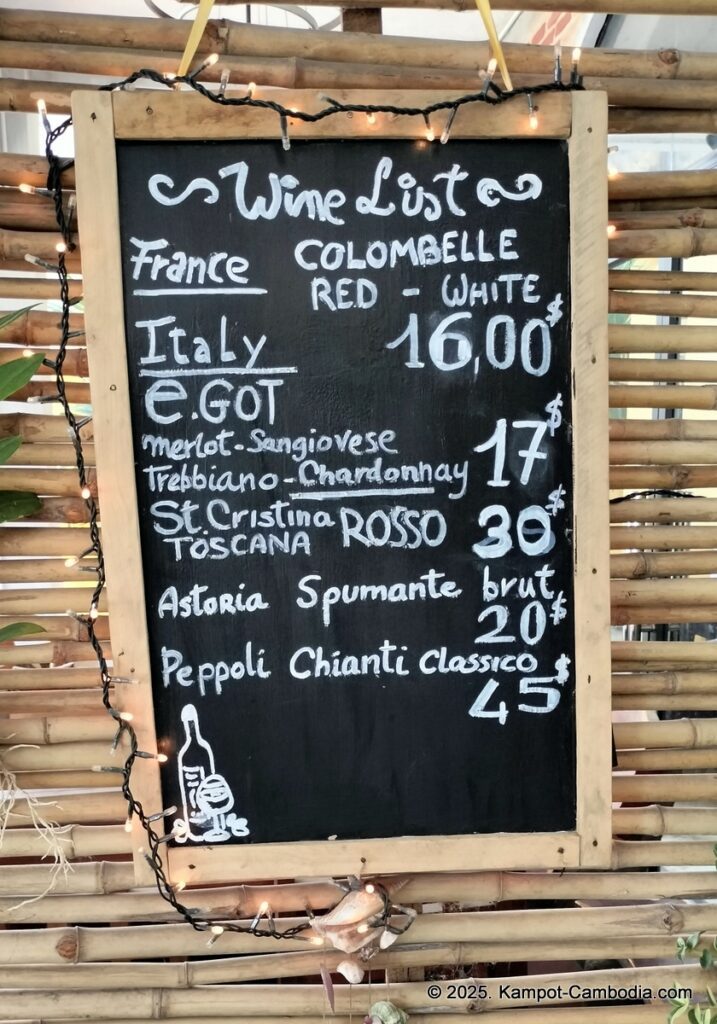 Wine List
France COLOMBELLE
RED - WHITE
Italy 16,00$
e.GOT
Merlot-Sangiovese
Trebbiano-Chardonnay 17$
St Cristina ROSSO 30$
TOSCANA
Astoria Spumante brut
20$
Peppoli Chianti Classico
45$
© 2025. Kampot-Cambodia.com